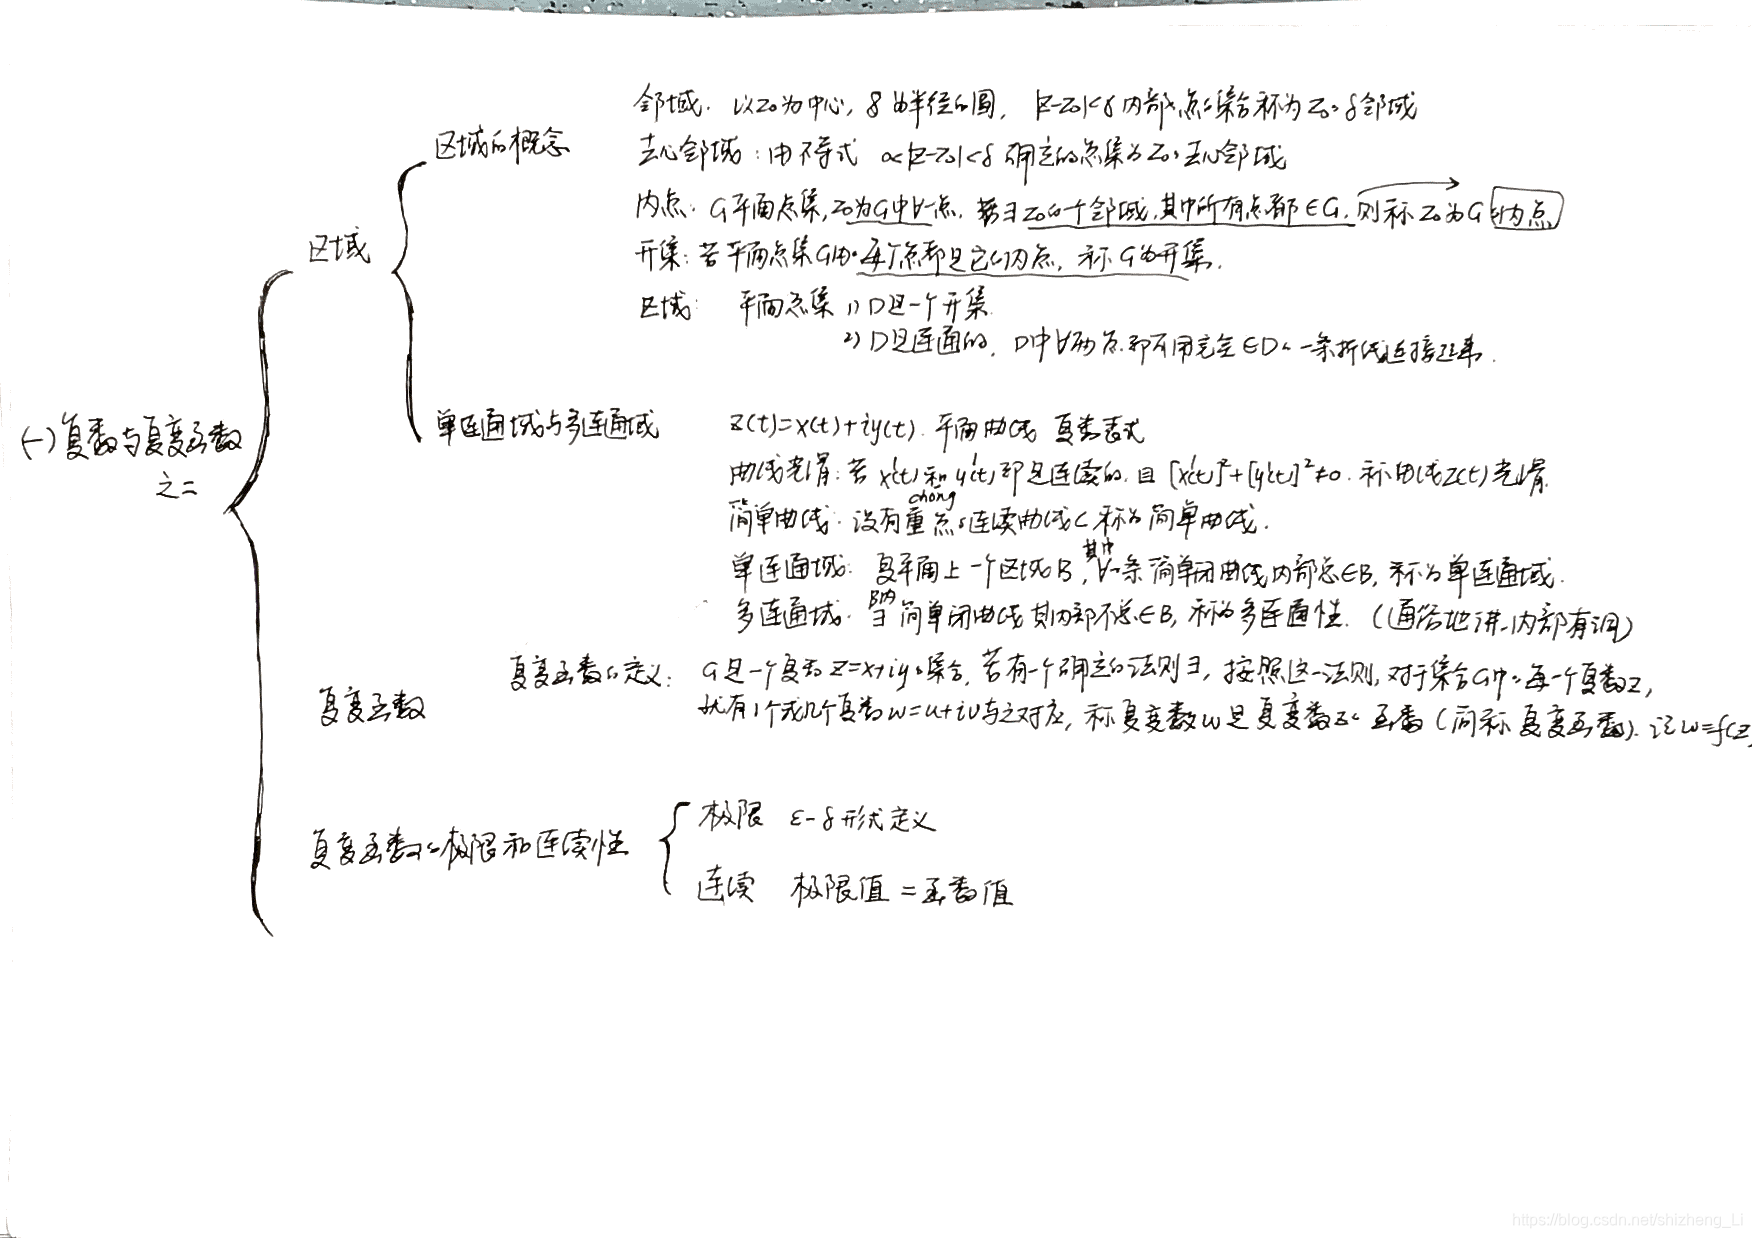 邻域. 以z₀为中心, δ为半径的圆, |z-z₀|<δ内部点的集合称为z₀的δ邻域
区域的概念
去心邻域: 由不等式 0<|z-z₀|<δ 确定的点集为z₀的去心邻域
内点: G平面点集, z₀为G中∀一点. 若∃z₀的一个邻域, 其中所有点都∈G, 则称z₀为G的内点
区域
开集: 若平面点集G中的每个点都是它的内点, 称G为开集.
区域: 平面点集 1) D是一个开集.
2) D是连通的, D中∀两点都可用完全∈D的一条折线连接起来.
(一) 复数与复变函数
之二
单连通域与多连通域
z(t)=x(t)+iy(t). 平面曲线 复数表式
曲线光滑: 若x'(t)和y'(t)都是连续的. 且[x'(t)]²+[y'(t)]²≠0. 称曲线z(t)光滑.
chóng
简单曲线. 没有重点的连续曲线C称为简单曲线.
单连通域: 复平面上一个区域B, 其中∀一条简单闭曲线内部总∈B, 称为单连通域.
多连通域. B内∃简单闭曲线其内部不总∈B, 称为多连通性. (通俗地讲-内部有洞)
复变函数
复变函数的定义: G是一个复数z=x+iy的集合, 若有一个确定的法则∃, 按照这一法则, 对于集合G中的每一个复数z,
就有1个或几个复数w=u+iv与之对应, 称复变数w是复变数z的函数(简称复变函数). 记w=f(z
复变函数的极限和连续性
极限 ε-δ形式定义
连续 极限值=函数值
https://blog.csdn.net/shizheng_Li